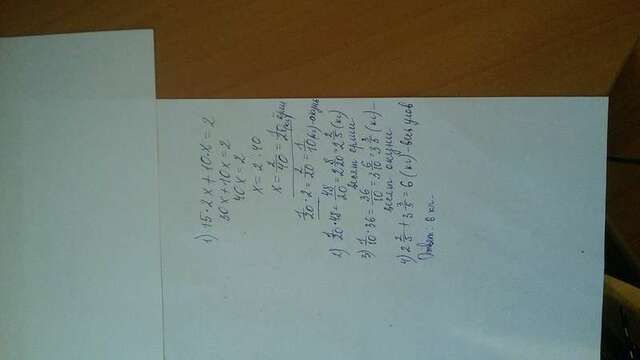 1) 15·2x+10·x=2
30x+10x=2
40x=2
x=2:40
x=2/40=1/20 (кг) ерш
1/20·2=2/20=1/10(кг)-окунь
2) 1/20·48=48/20=2 8/20=2 2/5 (кг)
весят ерши
3) 1/10·36=36/10=3 6/10=3 3/5 (кг)-
весят окуни
4) 2 2/5+3 3/5=6 (кг)-весь улов
Ответ: 6 кг.